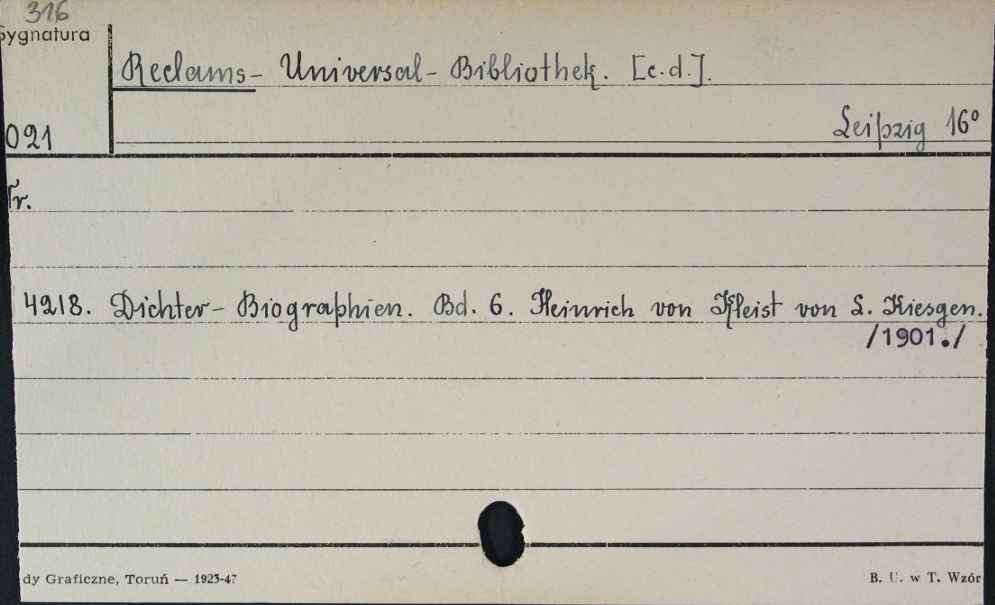 316
Sygnatura
Reclams- Universal-Bibliothek. [c.d.].
021
Leipzig 16°
Tr.
4218. Dichter-Biographien. Bd. 6. Heinrich von Kleist von L. Kiesgen.
/1901./
dy Graficzne, Toruń — 1923-47
B. U. w T. Wzór